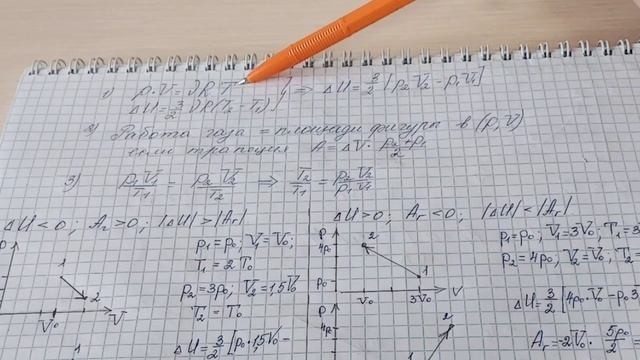 1) p·V = νRT } ⇒ ΔU = 3/2 [p₂V₂ - p₁V₁]
ΔU = 3/2 νR(T₂ - T₁)
2) Работа газа = площади фигуры в (p, V)
если трапеция A = ΔV · (p₂ + p₁)/2
3) p₁V₁/T₁ = p₂V₂/T₂ ⇒ T₂/T₁ = p₂V₂/p₁V₁
ΔU < 0 ; Aг > 0 ; |ΔU| > |Aг|
p₁ = p₀ ; V₁ = V₀ ;
T₁ = 2T₀
p₂ = 3p₀ ; V₂ = 1,5V₀
T₂ = T₀
ΔU = 3/2 [p₀·1,5V₀ -
1
2
V₀
V
1
ΔU > 0 ; Aг < 0 ; |ΔU| < |Aг|
p
4p₀
2
1
p₀
V₀
3V₀
V
p
4p₀
2
p₁ = p₀ ; V₁ = 3V₀ ; T₁ = 3
p₂ = 4p₀ ; V₂ = V₀ ; T₂ =
ΔU = 3/2 [4p₀·V₀ - p₀3
Aг = -2V₀ · 5p₀/2